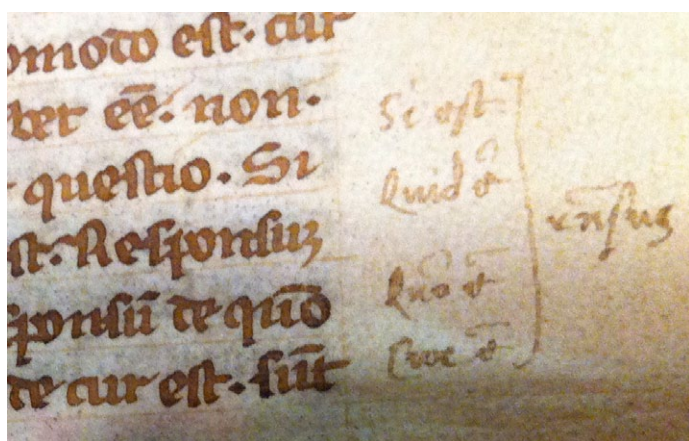 omodo est. cur
ber eē. non.
questio. Si
st. Responsuꝫ
sponsū de quō
de cur est. sūt
Si est
Quid ē
Quō ē
Cur ē